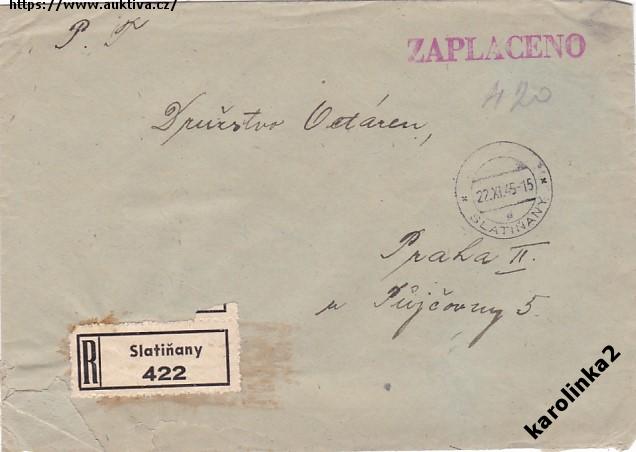 https://www.aukтiva.cz/
P. T.
ZAPLACENO
420
Družstvo Octáren,
22.XI.45-15
SLATIŇANY
Praha II.
u Půjčovny 5.
R
Slatiňany
422
karolinka2